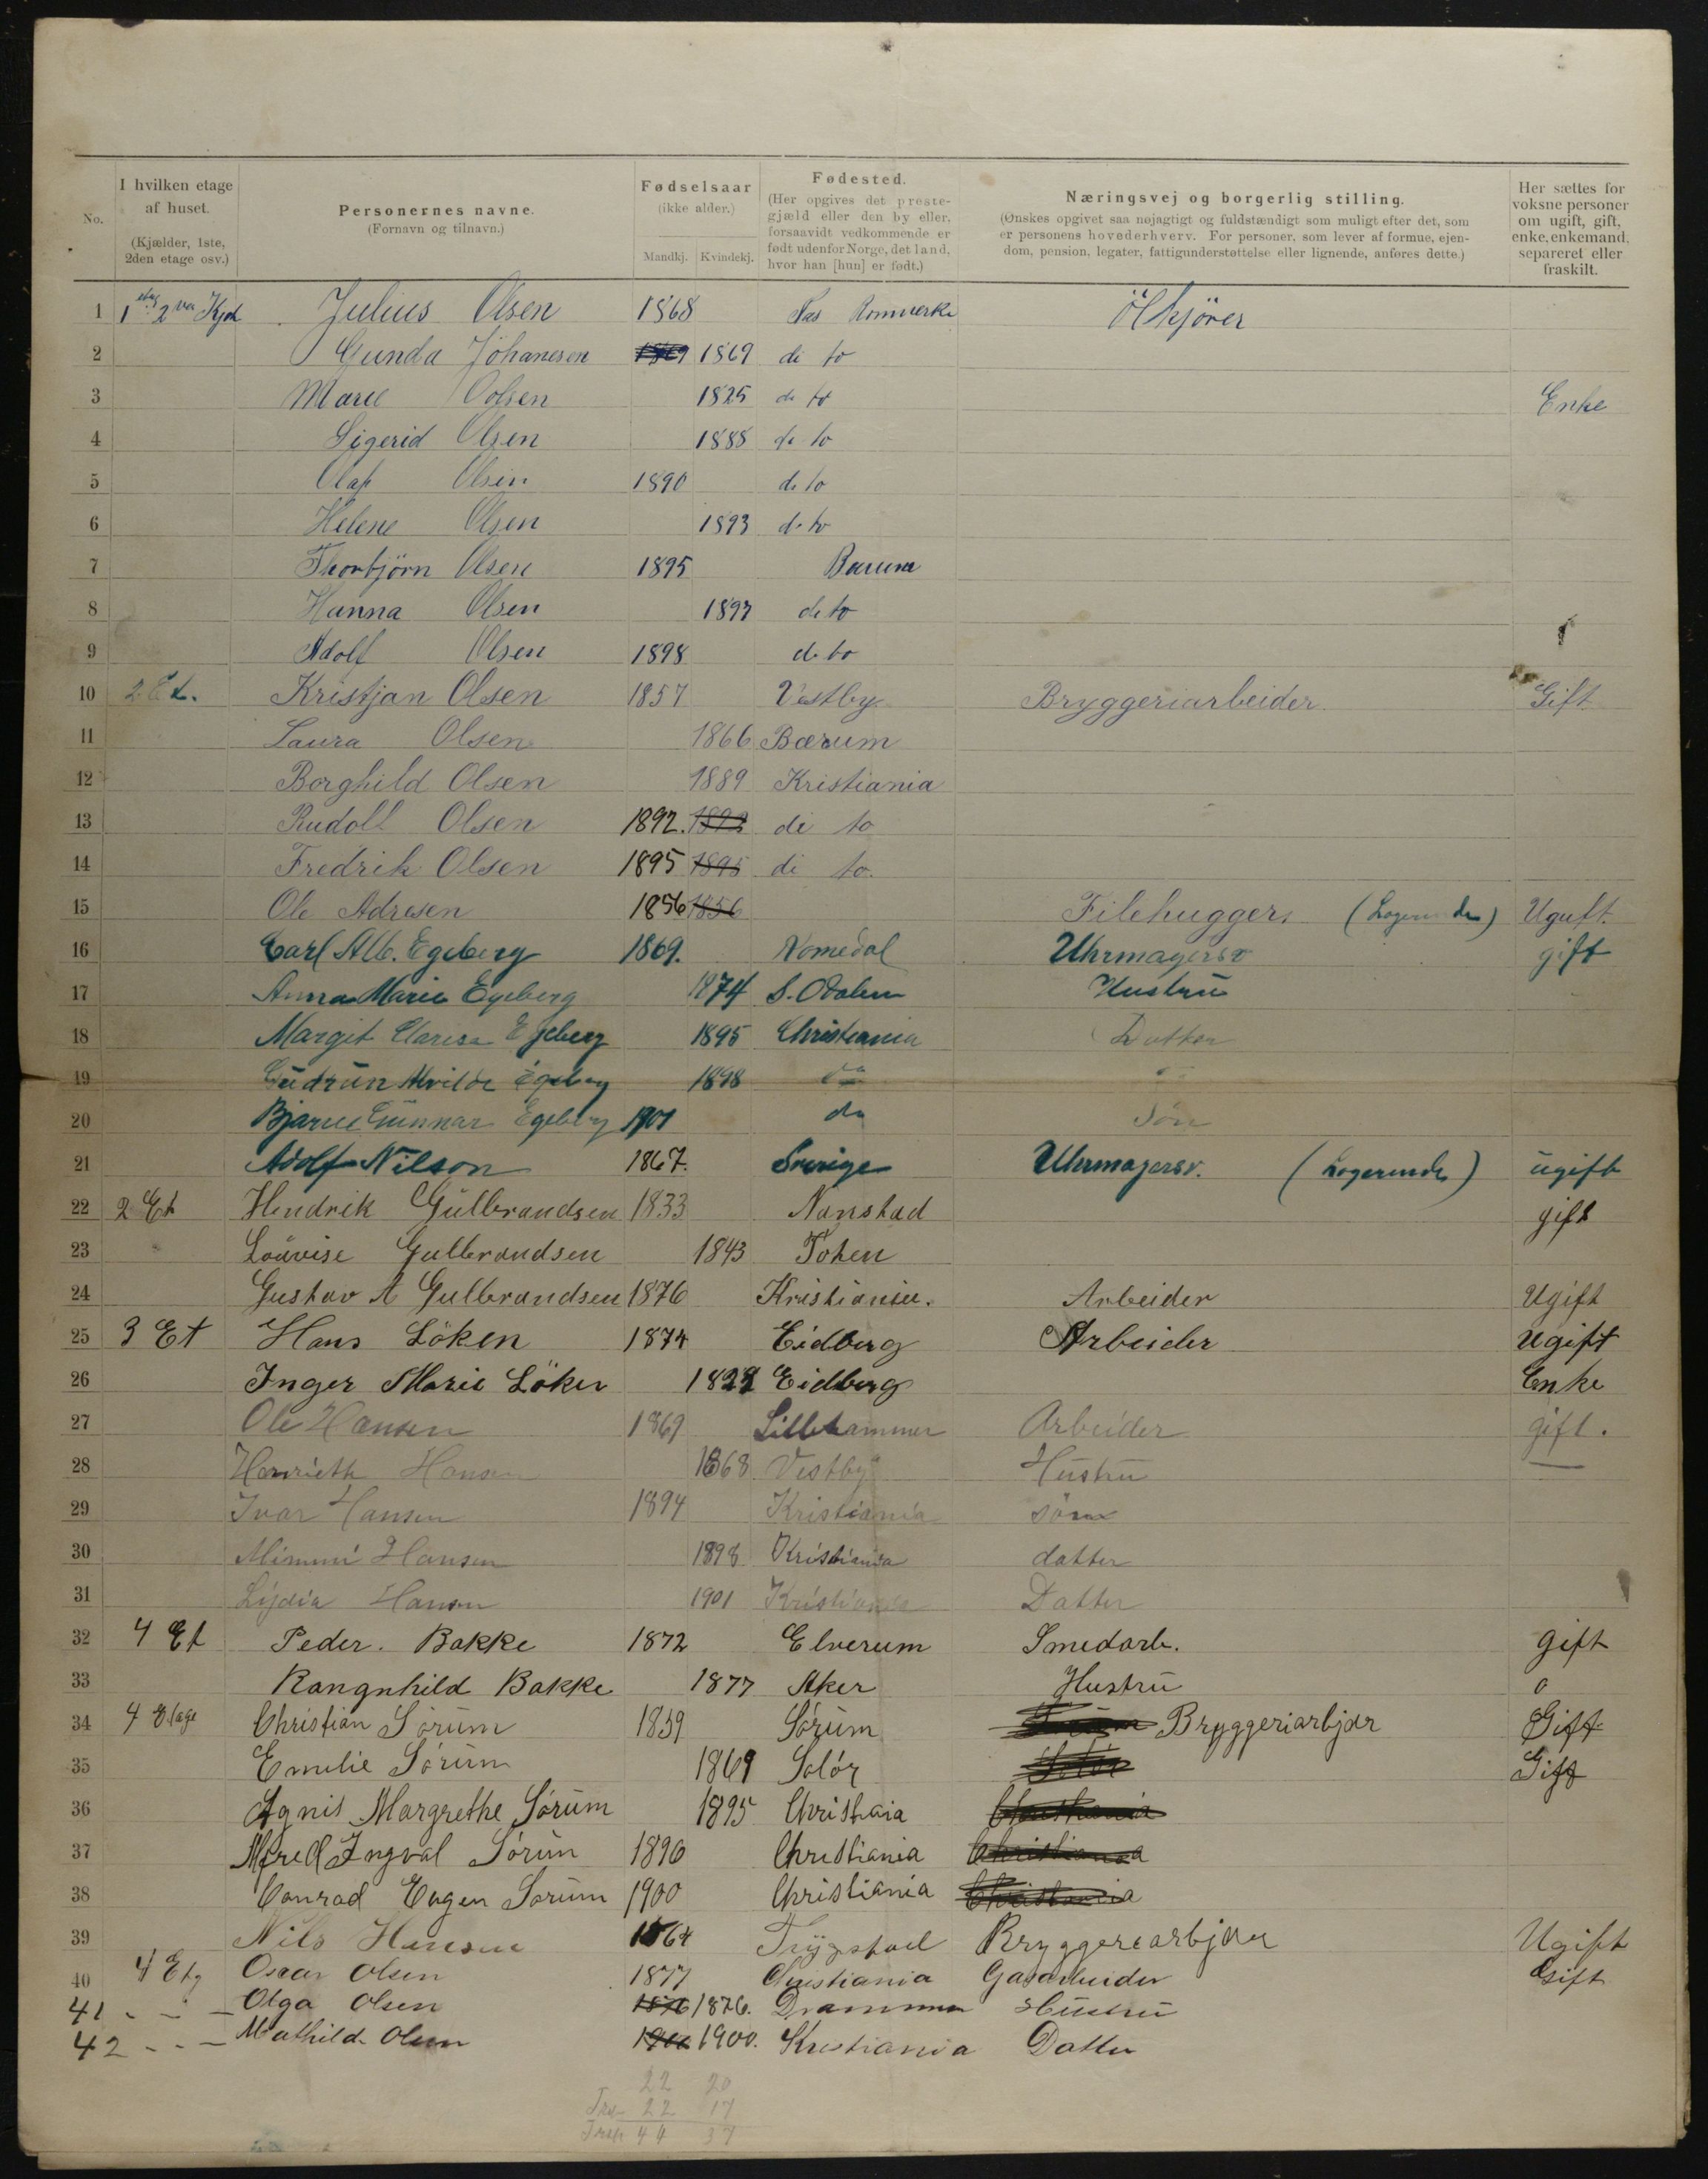 No. I hvilken etage af huset. (Kjælder, 1ste, 2den etage osv.) Personernes navne. (Fornavn og tilnavn.) Fødselsaar (ikke alder.) Mandkj. Kvindekj. Fødested. (Her opgives det prestegjæld eller den by eller, forsaavidt vedkommende er født udenfor Norge, det land, hvor han [hun] er født.) Næringsvej og borgerlig stilling. (Ønskes opgivet saa nøjagtigt og fuldstændigt som muligt efter det, som er personens hovederhverv. For personer, som lever af formue, ejendom, pension, legater, fattigunderstøttelse eller lignende, anføres dette.) Her sættes for voksne personer om ugift, gift, enke, enkemand, separeret eller fraskilt.
1 1 etg 2 vær Kjøk Julius Olsen 1868 Nes Romerke Ölkjörer
2 Gunda Johanesen 1869 1869 di to
3 Marie Oolsen 1825 de to Enke
4 Sigerid Olsen 1888 de to
5 Olaf Olsen 1890 de to
6 Helene Olsen 1893 de to
7 Thorbjörn Olsen 1895 Bærum
8 Hanna Olsen 1897 de to
9 Adolf Olsen 1898 de to
10 2 Et. Kristjan Olsen 1857 Vestby Bryggeriarbeider Gift
11 Laura Olsen 1866 Bærum
12 Borghild Olsen 1889 Kristiania
13 Rudolf Olsen 1892. 1892 di to
14 Fredrik Olsen 1895 1895 di to.
15 Ole Adresen 1856 1856 Filehugger (Logerende) Uguft.
16 Carl Alb. Egeberg 1869. Nomedal Uhrmagersv gift
17 Anna Marie Egeberg 1874 S. Odalen Hustru
18 Margit Clarisa Egeberg 1895 Christiania Datter
19 Gudrun Alvilde Egeberg 1898 do do
20 Bjarne Gunnar Egeberg 1901 do Søn
21 Adolf Nilson 1867. Sverige Uhrmagersv. (Logerende) ugift
22 2 Et Hendrik Gulbrandsen 1833 Nanstad gift
23 Louvise Gulbrandsen 1843 Toten
24 Gustav A Gulbrandsen 1876 Kristiania. Arbeider Ugift
25 3 Et Hans Löken 1874 Eidberg Arbeider Ugift
26 Inger Marie Löken Eidberg Enke
27 Ole Hansen 1869 Lillehammer Arbeider gift.
28 Henriette Hansen 1868 Vestby Hustru —
29 Ivar Hansen 1894 Kristiania sön
30 Mimmi Hansen 1898 Kristiania datter
31 Lydia Hansen 1901 Kristiania Datter
32 4 Et Peder. Bakke 1872 Elverum Smedarb. gift
33 Rangnhild Bakke 1877 Aker Hustru o
34 4 Etage Christian Sörum 1859 Sörum Sörum Bryggeriarbjdr Gift
35 Emelie Sörum 1869 Solör Solör Gift
36 Agnis Margrethe Sörum 1895 Christiaia Christiania
37 Alfred Ingval Sörum 1896 Christiania Christiania
38 Conrad Eugen Sorum 1900 Christiania Christiania
39 Nils Hansen 1864 Trygstad Bryggerearbjder Ugift
40 4 Etg Oscar Olsen 1877 Christiania Gasarbeider Gift
41 - - - Olga Olsen 1876 1876. Drammen Hustru
42 - - - Mathilde Olsen 1900 1900. Kristiania Datter
22 20
22 17
44 37